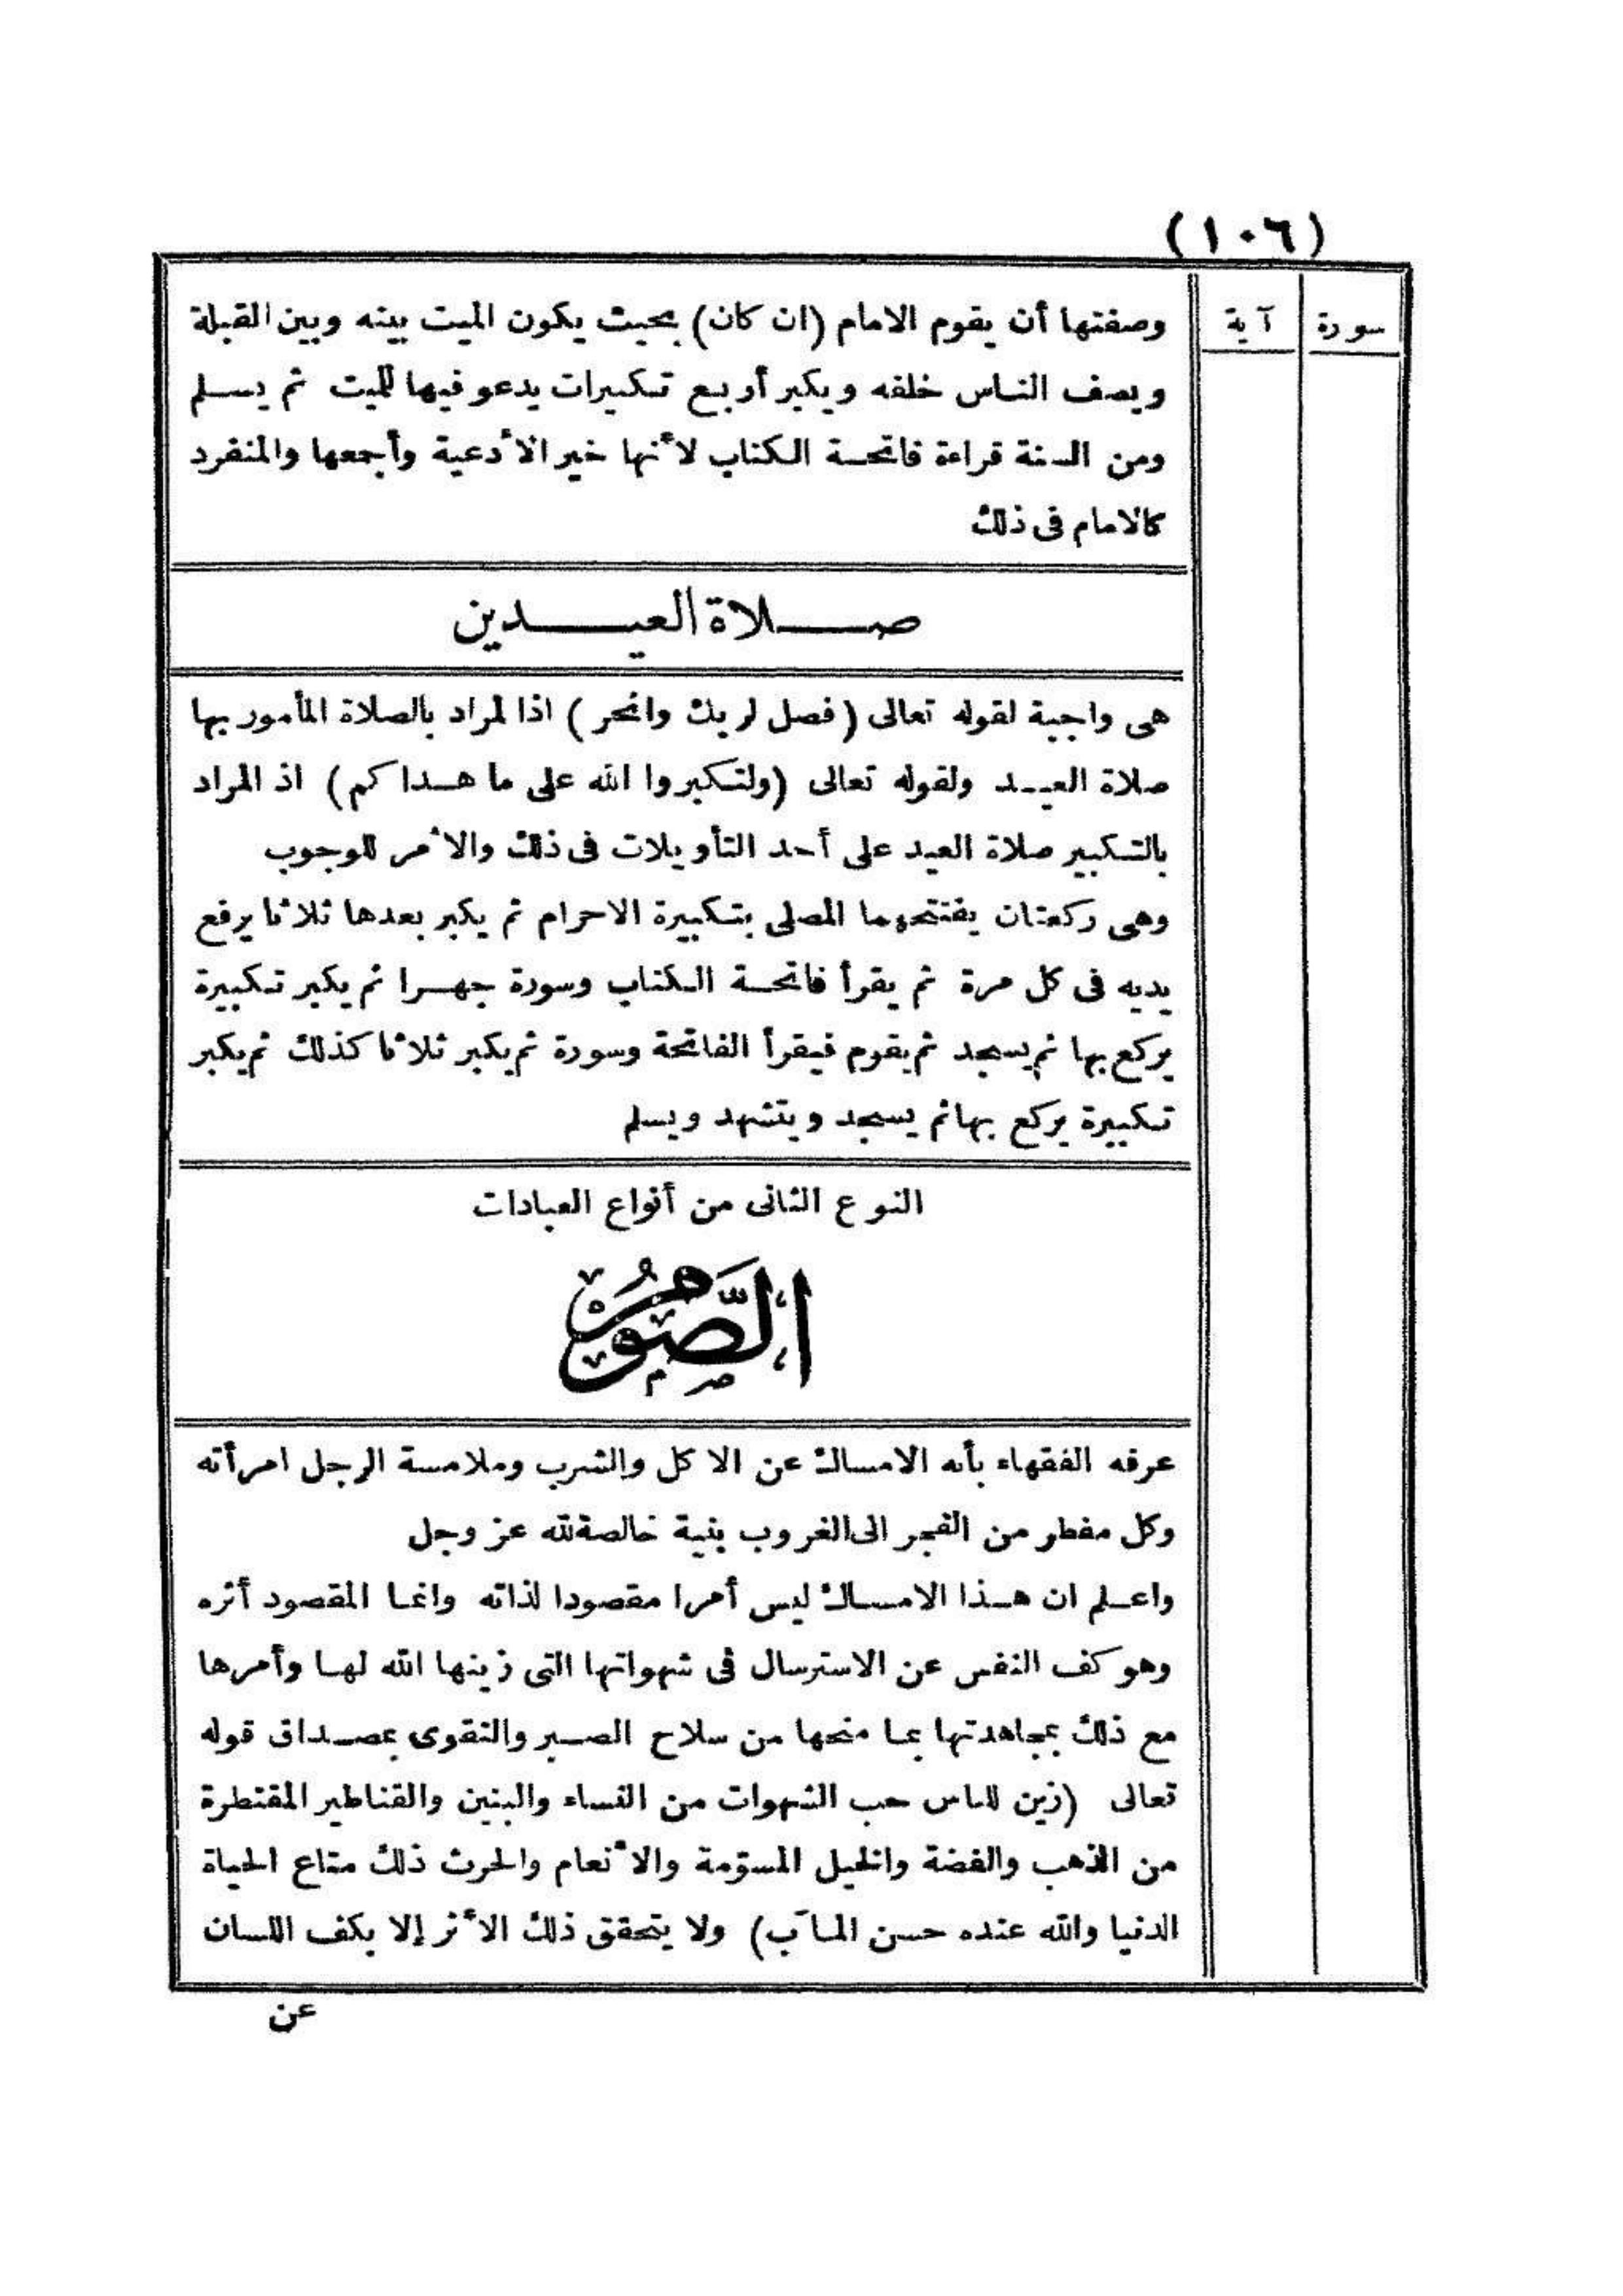 (١٠٦)
سورة آية
وصفتها أن يقوم الامام (ان كان) بحيث يكون الميت بينه وبين القبلة
ويصف الناس خلفه ويكبر أربع تكبيرات يدعو فيها للميت ثم يسلم
ومن السنة قراءة فاتحة الكتاب لأنها خير الأدعية وأجمعها والمنفرد
كالامام فى ذلك
صلاة العيدين
هى واجبة لقوله تعالى (فصل لربك وانحر) اذا لمراد بالصلاة المأمور بها
صلاة العيد ولقوله تعالى (ولتكبروا الله على ما هداكم) اذ المراد
بالتكبير صلاة العيد على أحد التأويلات فى ذلك والأمر للوجوب
وهى ركعتان يفتتحهما المصلى بتكبيرة الاحرام ثم يكبر بعدها ثلاثا يرفع
يديه فى كل مرة ثم يقرأ فاتحة الكتاب وسورة جهرا ثم يكبر تكبيرة
يركع بها ثم يسجد ثم يقوم فيقرأ الفاتحة وسورة ثم يكبر ثلاثا كذلك ثم يكبر
تكبيرة يركع بها ثم يسجد ويتشهد ويسلم
النوع الثانى من أنواع العبادات
الصَّوْمُ
عرفه الفقهاء بأنه الامساك عن الاكل والشرب وملامسة الرجل امرأته
وكل مفطر من الفجر الى الغروب بنية خالصة لله عز وجل
واعلم ان هذا الامساك ليس أمرا مقصودا لذاته وانما المقصود أثره
وهو كف النفس عن الاسترسال فى شهواتها التى زينها الله لها وأمرها
مع ذلك بمجاهدتها بما منحها من سلاح الصبر والتقوى بمصداق قوله
تعالى (زين للناس حب الشهوات من النساء والبنين والقناطير المقنطرة
من الذهب والفضة والخيل المسوّمة والأنعام والحرث ذلك متاع الحياة
الدنيا والله عنده حسن المآب) ولا يتحقق ذلك الأثر إلا بكف اللسان
عن